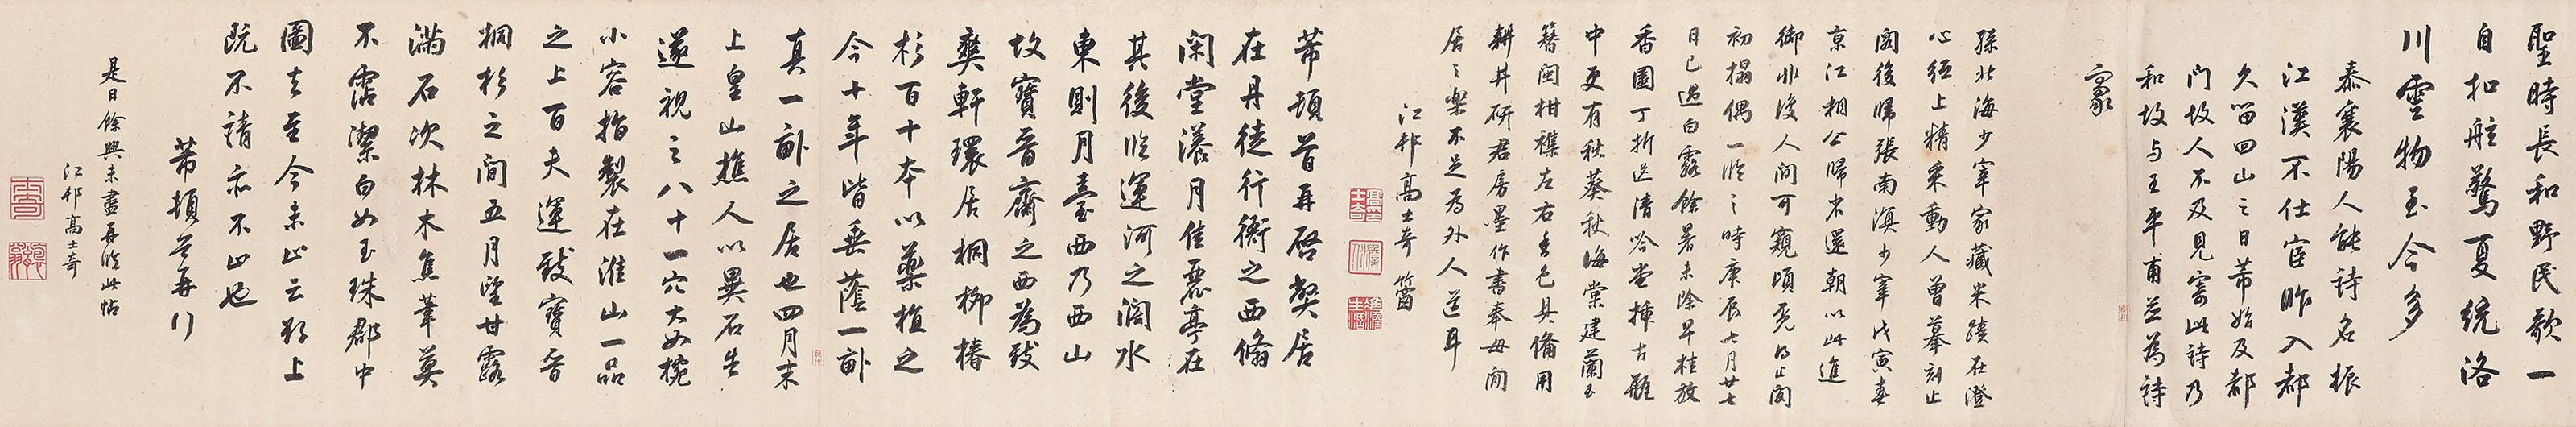 聖時長和野民歌一
自扣舷驚夏統洛
川雲物至今多
泰襄陽人能詩名振
江漢不仕宦昨入都
久留回山之日芾始及都
門故人不及見寄此詩乃
和故与王平甫並為詩
豪
孫北海少宰家藏米蹟在澄
心紙上精采動人曾摹刻止
閣後歸張南溟少宰戊寅春
京江相公歸老還朝以此進
御非復人間可窺頃
初搨偶一臨之時庚辰七月廿七
日已過白露餘暑未除早桂放
香園丁折送清吟堂插古瓶
中更有秋葵秋海棠建蘭玉
簪閩柑襍左右香色具備用
耕井研君房墨作書奉母閒
居之樂不足為外人道耳
江邨高士奇
芾頓首再啓弊居
在丹徒行衙之西脩
閑堂漾月佳麗亭在
其後臨運河之闊水
東則月臺西乃西山
故寶晉齋之西為致
爽軒環居桐柳椿
杉百十本以藥植之
今十年皆垂蔭一畝
真一畝之居也四月末
上皇山樵人以異石告
遂視之八十一穴大如椀
小容指製在淮山一品
之上百夫運致寶晉
桐杉之間五月望甘露
滿石次林木焦葦莫
不霑潔白如玉珠郡中
圖去至今未止云欲上
既不請亦不止也
芾頓首再行
是日餘興未盡再臨此帖
江邨高士奇